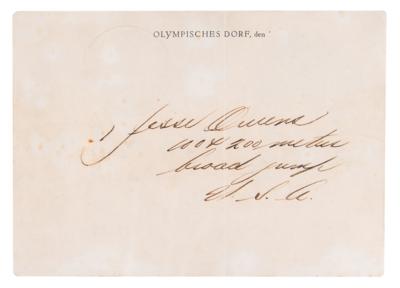 OLYMPISCHES DORF, den
Jesse Owens
100 & 200 meter
broad jump
U. S. A.